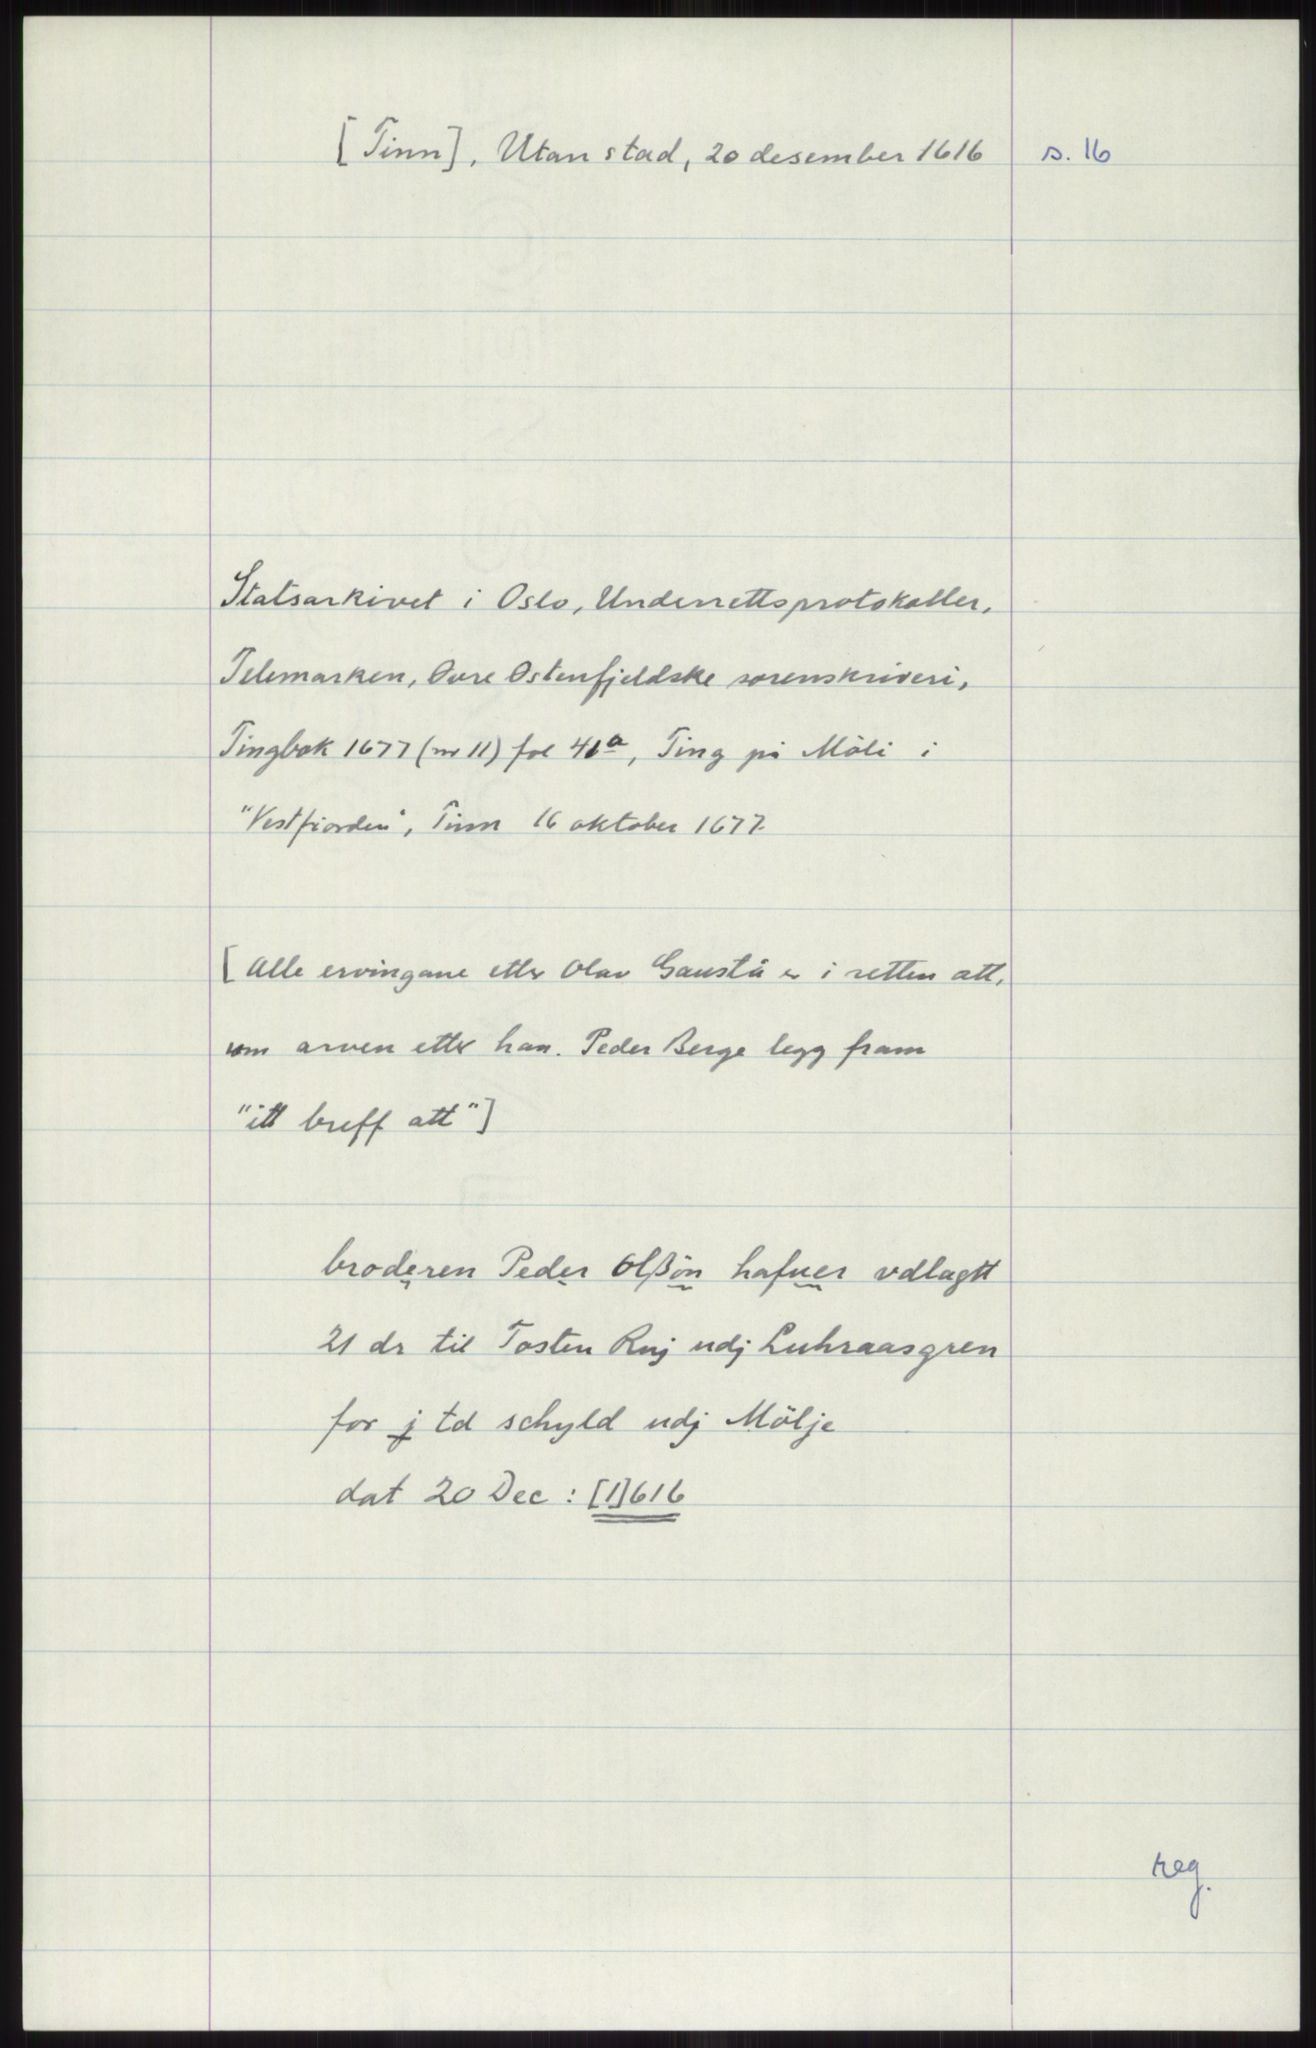 [Tinn], Utan stad, 20 desember 1616 s. 16
Statsarkivet i Oslo, Underrettsprotokoller,
Telemarken, Øvre Østenfjeldske sorenskriveri,
Tingbok 1677 (nr 11) fol 41a, Ting på Mæli i
"Vestfiorden", Tinn 16 oktober 1677.
[Alle ervingane etter Olav Gaustå er i retten att,
um arven etter han. Peder Berge legg fram
"itt breff att"]
broderen Peder Olßøn hafuer vdlagtt
21 dr til Tosten Ruj udj Luhraasgren
for j td schyld udj Mölje
dat 20 Dec : [1]616
reg.